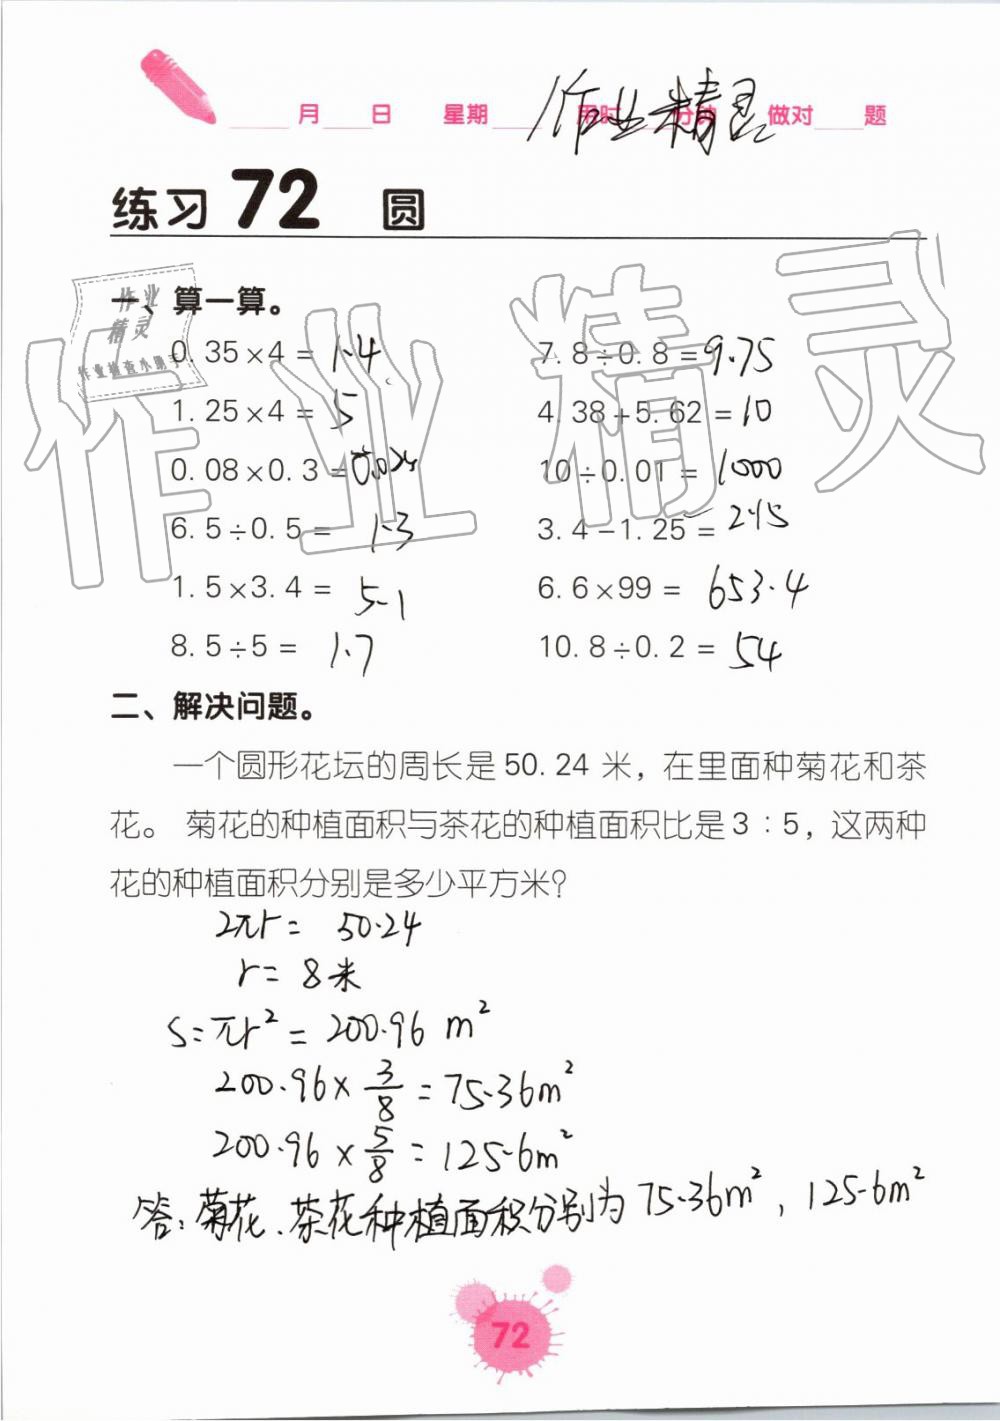 月 日 星期 用时 分钟 做对 题
作业精灵
练习 72 圆
一、算一算。
作业
精灵
作业检查小助手
作业精灵
0.35×4=1.4 7.8÷0.8=9.75
1.25×4=5 4.38+5.62=10
0.08×0.3=0.024 10÷0.01=1000
6.5÷0.5= 1.3 3.4-1.25=2.15
1.5×3.4= 5.1 6.6×99= 653.4
8.5÷5= 1.7 10.8÷0.2=54
二、解决问题。
一个圆形花坛的周长是50.24 米，在里面种菊花和茶
花。 菊花的种植面积与茶花的种植面积比是3∶5，这两种
花的种植面积分别是多少平方米？
2πr= 50.24
r= 8米
S=πr²=200.96 m²
200.96×3/8=75.36m²
200.96×5/8=125.6m²
答：菊花、茶花种植面积分别为75.36m²，125.6m²
72